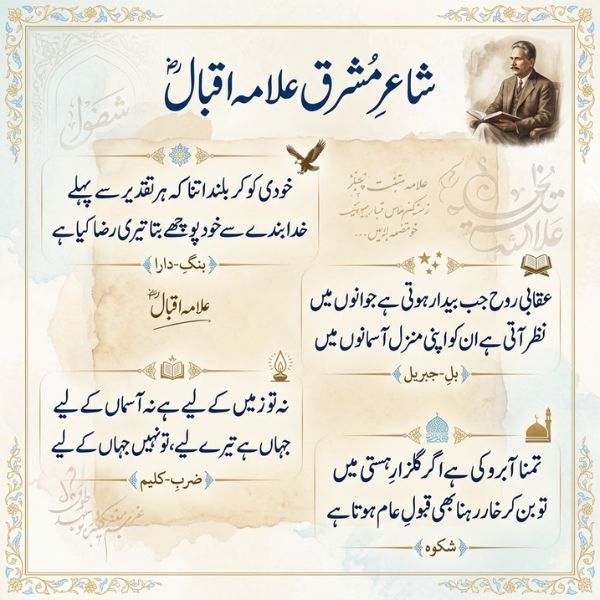 شاعرِ مُشرق علامہ اقبال ؒ
خودی کو کر بلند اتنا کہ ہر تقدیر سے پہلے
خدا بندے سے خود پوچھے بتا تیری رضا کیا ہے
بنگِ-دارا
علامہ اقبال
عقابی روح جب بیدار ہوتی ہے جوانوں میں
نظر آتی ہے ان کو اپنی منزل آسمانوں میں
بلِ-جبریل
نہ تو زمیں کے لیے ہے نہ آسماں کے لیے
جہاں ہے تیرے لیے، تو نہیں جہاں کے لیے
ضربِ-کلیم
تمنا آبرو کی ہے اگر گلزارِ ہستی میں
تو بن کر خار رہنا بھی قبولِ عام ہوتا ہے
شکوہ